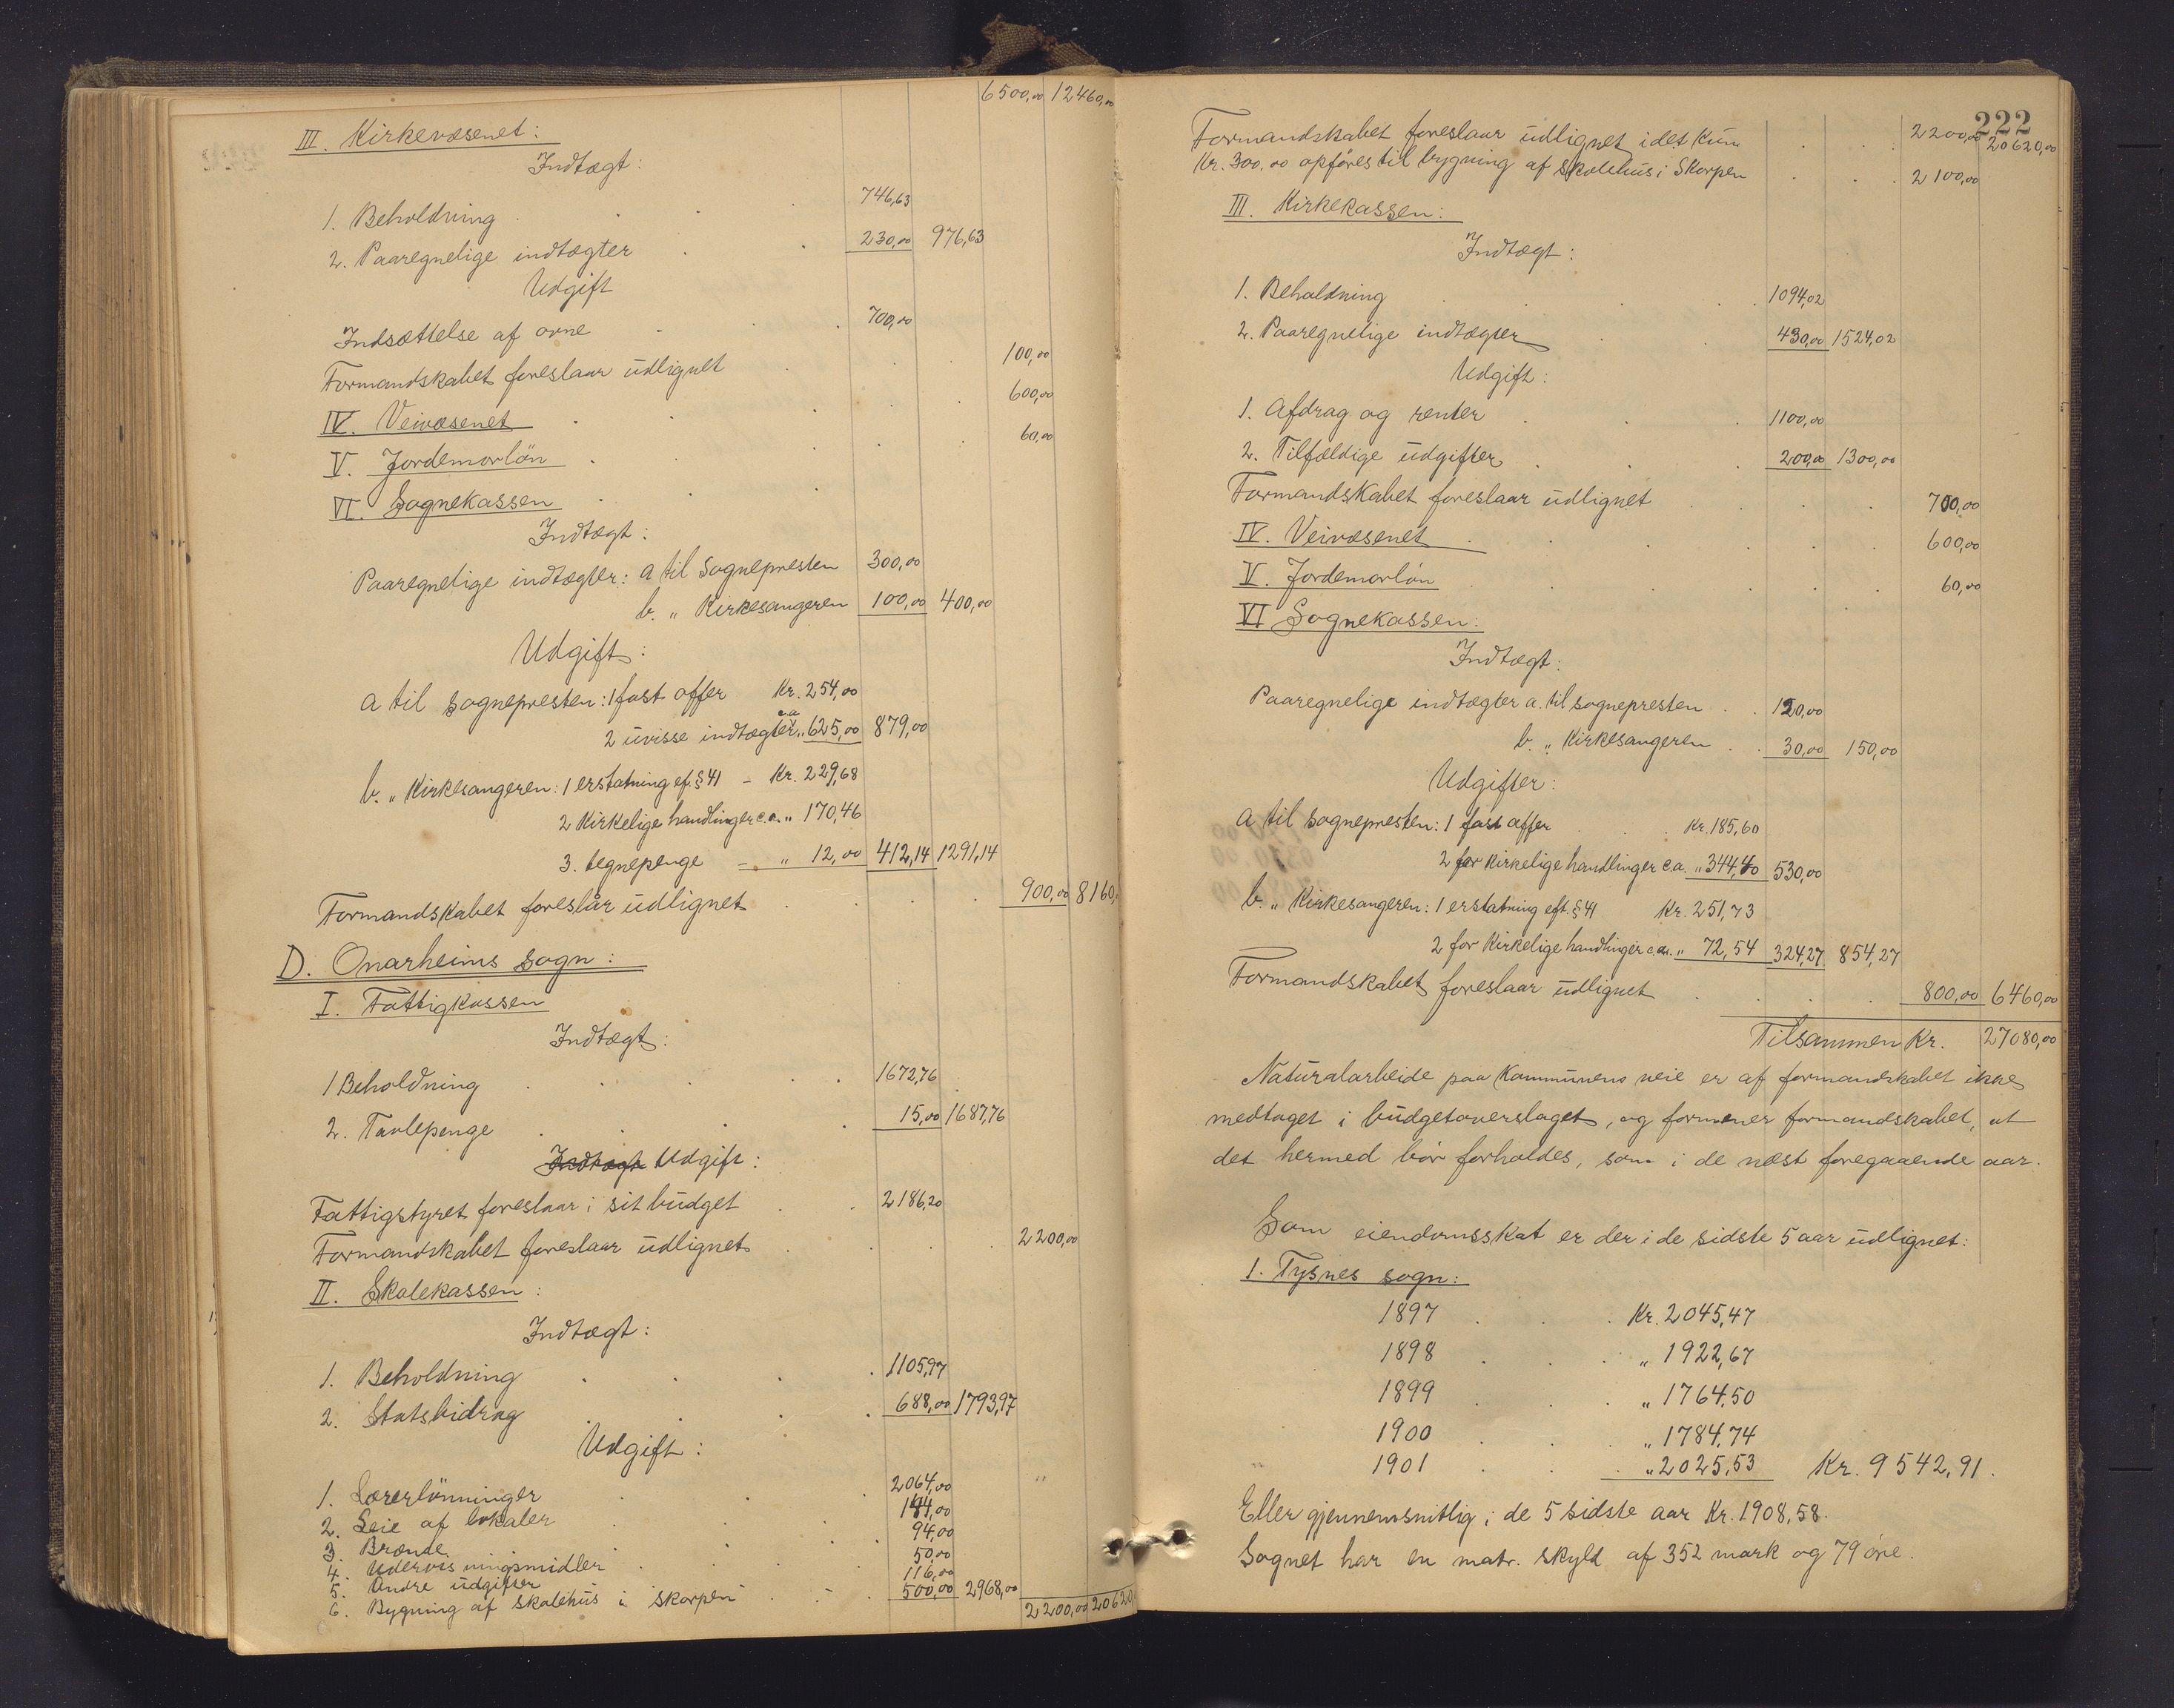 6500,00 12460,00
III. Kirkevæsenet:
Indtægt:
1. Beholdning 746,63
2. Paaregnelige indtægter 230,00 976,63
Udgift
Indsættelse af ovne 700,00
Formandskabet foreslaar udlignet 100,00
IV. Veivæsenet 600,00
V. Jordemorløn 60,00
VI. Sognekassen
Indtægt:
Paaregnelige indtægter: a til sognepresten 300,00
b. „ Kirkesangeren 100,00 400,00
Udgift:
a til sognepresten: 1 fast offer Kr. 254,00
2 uvisse indtægter c.a „ 625,00 879,00
b. „ Kirkesangeren: 1 erstatning ef. § 41 – Kr. 229,68
2 Kirkelige handlinger c.a. „ 170,46
3. tegnepenge – „ 12,00 412,14 1291,14
Formandskabet foreslår udlignet 900,00 8160,
D. Onarheims sogn:
I. Fattigkassen
Indtægt:
1 Beholdning 1672,76
2. Tavlepenge 15,00 1687,76
Indtægt Udgift:
Fattigstyret foreslaar i sit budget 2186,20
Formandskabet foreslaar udlignet 2200,00
II. Skolekassen:
Indtægt:
1. Beholdning 1105,97
2. Statsbidrag 688,00 1793,97
Udgift:
1. Lærerlønninger 2064,00
2. Leie af lokaler 144,00
3. Brænde 94,00
4. Udervisningsmidler 50,00
5. Andre udgifter 116,00
6. Bygning af skolehus i Skorpen 500,00 2968,00
2200,00 20620,
222
2200,00 20620,00
Formandskabet foreslaar udlignet, idet kun
Kr. 300,00 opføres til bygning af skolehus i Skorpen 2100,00
III. Kirkekassen:
Indtægt:
1. Beholdning 1094,02
2. Paaregnelige indtægter 430,00 1524,02
Udgift:
1. Afdrag og renter 1100,00
2. Tilfældige udgifter 200,00 1300,00
Formandskabet foreslaar udlignet 700,00
IV. Veivæsenet 600,00
V. Jordemorløn 60,00
VI Sognekassen:
Indtægt:
Paaregnelige indtægter a. til sognepresten 120,00
b. „ Kirkesangeren 30,00 150,00
Udgifter:
a til sognepresten: 1 fast offer Kr. 185,60
2 for Kirkelige handlinger c.a. „ 344,40 530,00
b. „ Kirkesangeren: 1 erstatning eft. § 41 Kr. 251,73
2 for Kirkelige handlinger c.a. „ 72,54 324,27 854,27
Formandskabet foreslaar udlignet 800,00 6460,00
Tilsammen Kr. 27080,00
Naturalarbeide paa Kommunens veie er af formandskabet ikke
medtaget i budgetoverslaget, og formener formandskabet, at
det hermed bør forholdes, som i de næst foregaaende aar.
Som eiendomsskat er der i de sidste 5 aar udlignet:
1. Tysnes sogn:
1897 Kr. 2045,47
1898 „ 1922,67
1899 „ 1764,50
1900 „ 1784,74
1901 „ 2025,53 Kr. 9542,91.
Eller gjennemsnitlig i de 5 sidste aar Kr. 1908,58.
Sognet har en matr. skyld af 352 mark og 79 øre.